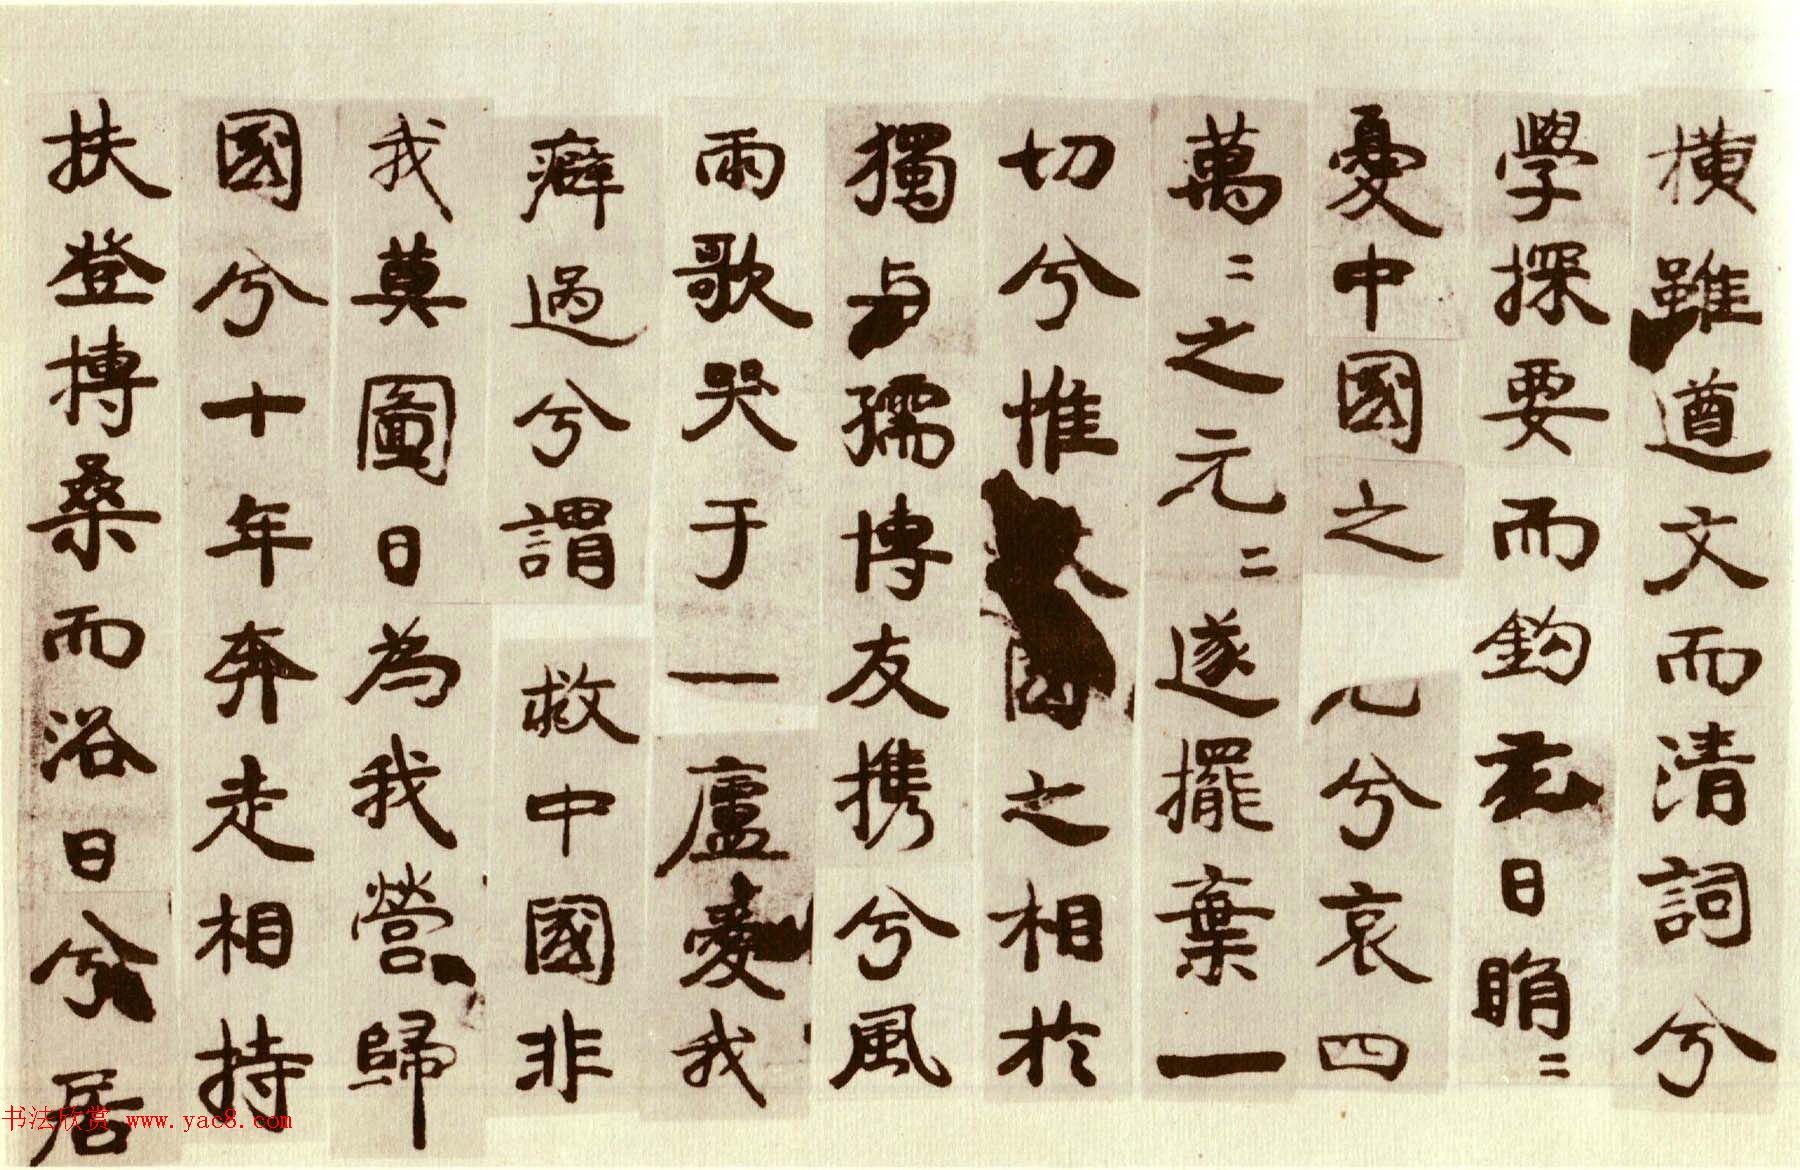 橫雖遒文而清詞兮
學探要而鉤玄日睊〻
憂中國之元兮哀四
萬〻之元〻遂擺棄一
切兮惟中國之相於
獨与孺博友攜兮風
雨歌哭于一廬愛我
癖過兮謂救中國非
我莫圖日為我營歸
國兮十年奔走相持
扶登搏桑而浴日兮居
书法欣赏 www.yac8.com